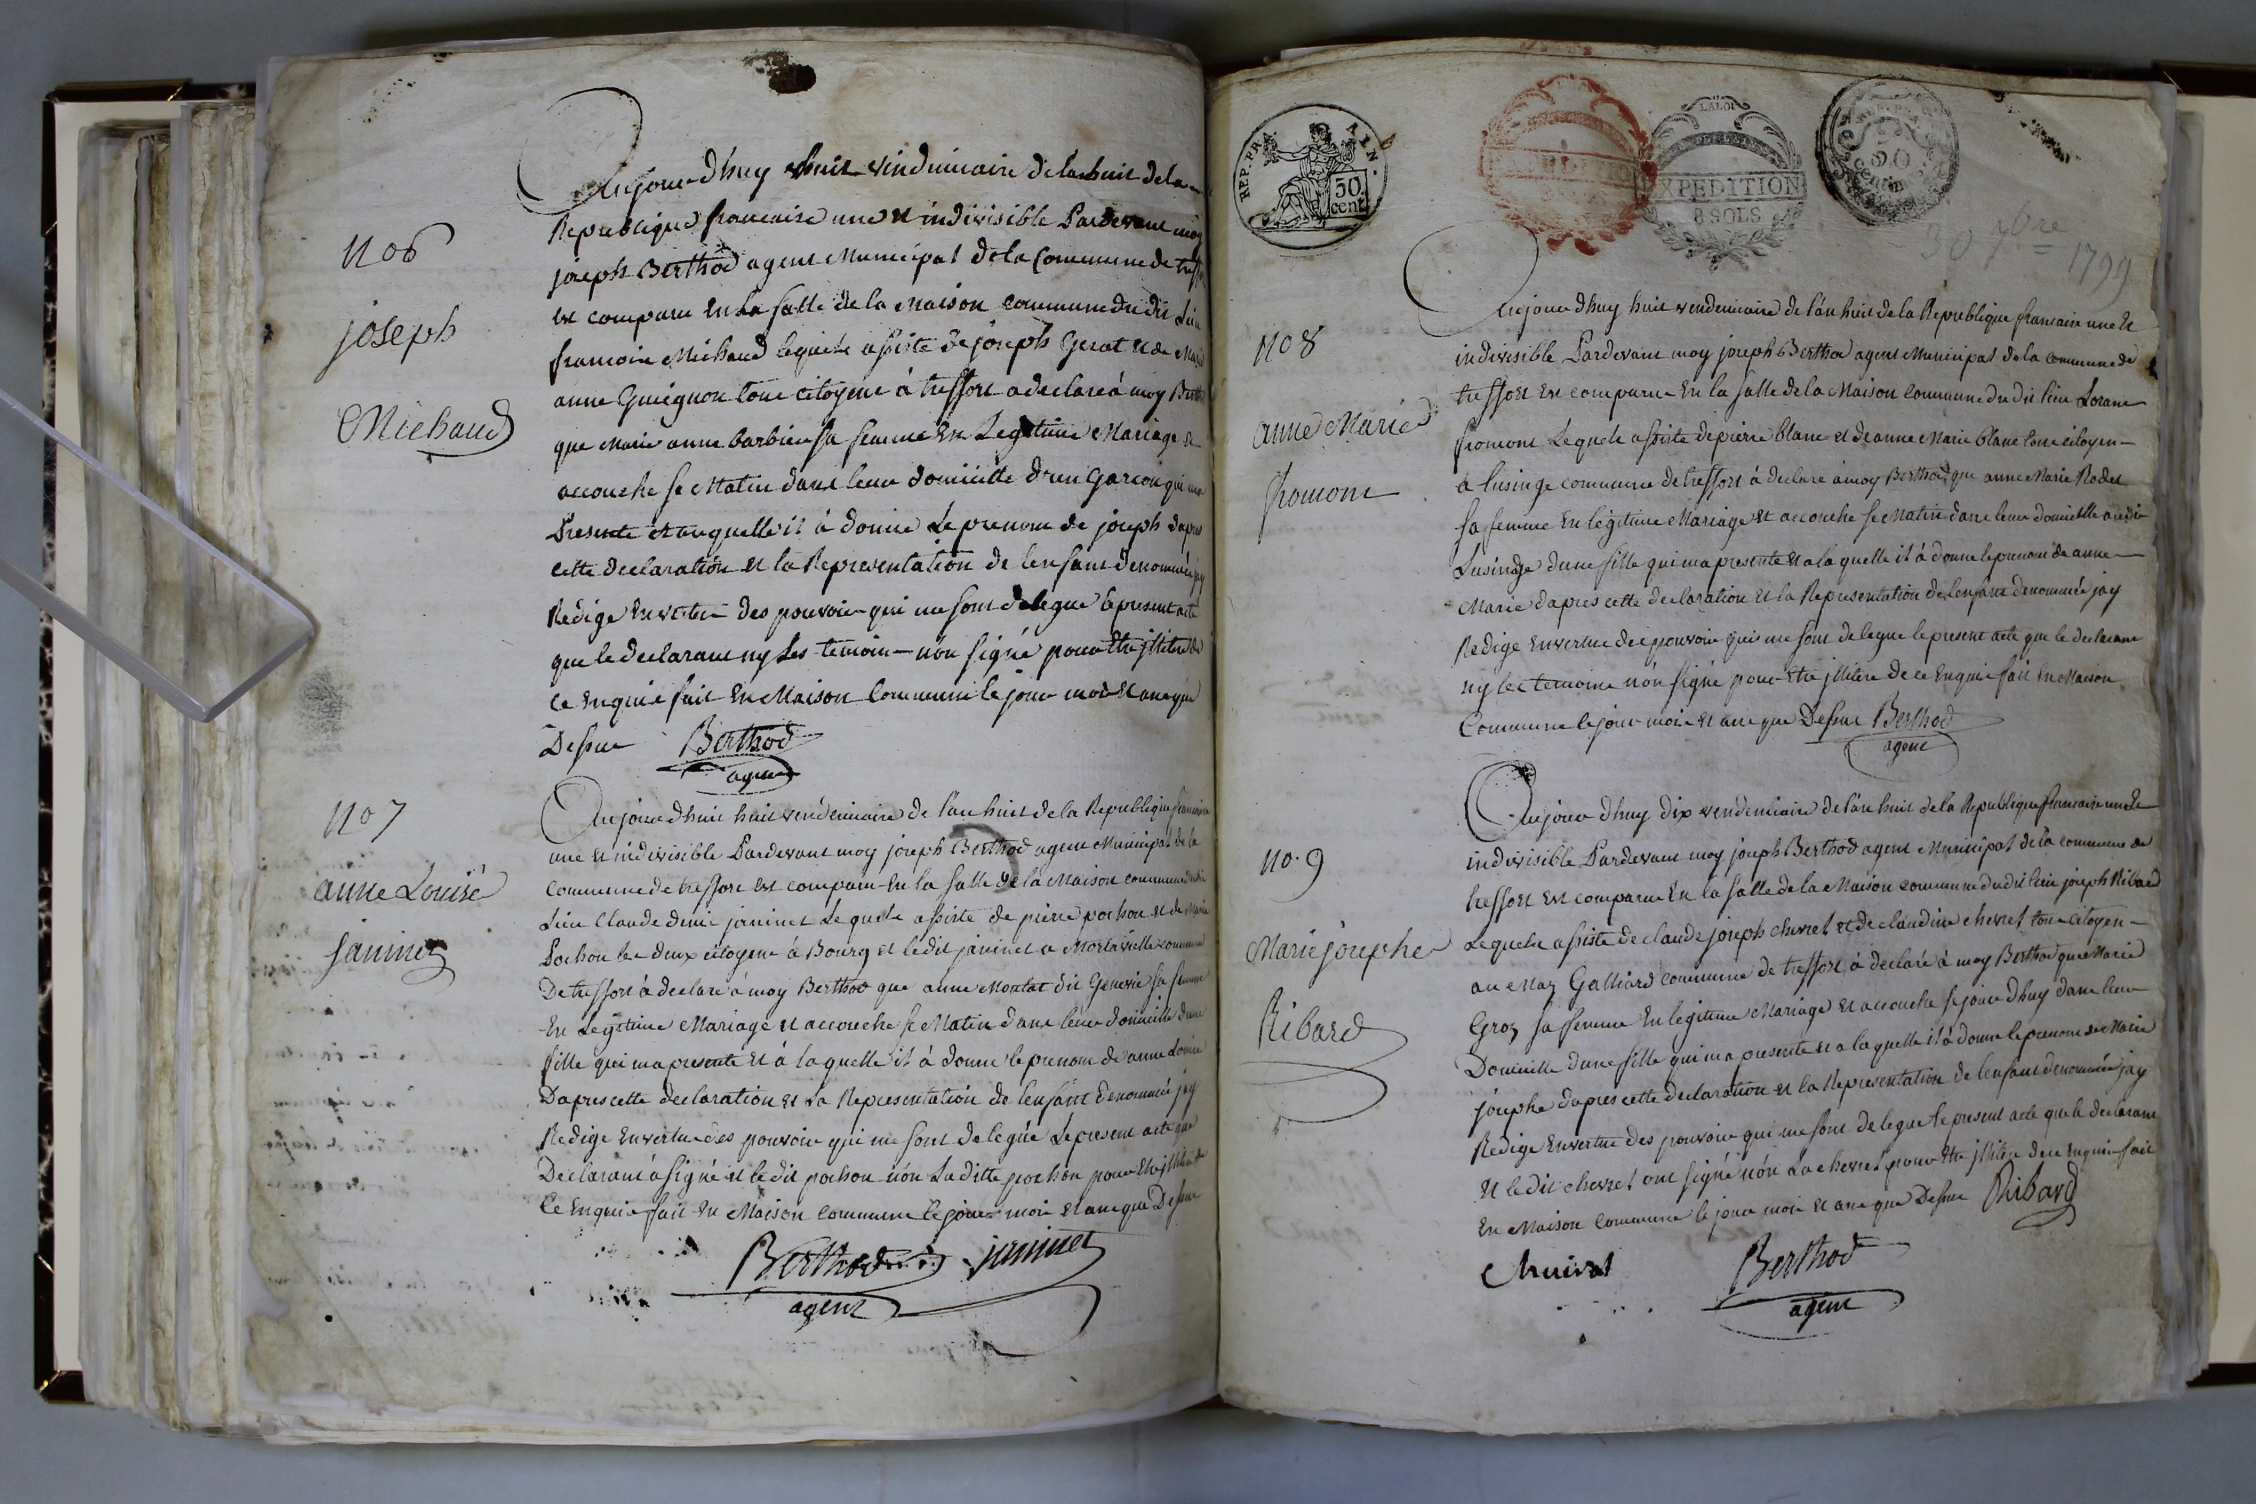 Aujourdhuy huit vendimiaire de lan huit de la
Republique francaise une et indivisible Pardevant moy
joseph Berthod agent Municipal de la Commune de treff
est comparu En la salle de la Maison commune du dit Lieu
francois Michaud lequele assiste de joseph Gerat et de Marie
anne Guignon tous citoyens à treffort a declaré à moy Berth
que Marie anne barbier sa femme En Legitime Mariage et
accouche se Matin dans leur domicille d'un Garcon qui ma
Presente et auquelle il à donne Le prenom de joseph dapres
cette declaration et la Representation de lenfant denommée jay
Redige En vertu des pouvoir qui me sont delegue le present acte
que le declarant ny Les temoin non signé pour Etre jlliteré de
ce Enquis fait En Maison Commune le jour mois et ans que
Dessus Berthod
agent
no 6
joseph
Michaud
Aujourdhuit huit vendemiaire de l'an huit de la Republique francaise
une et indivisible Pardevant moy joseph Berthod agent Municipal de la
Commune de treffort est comparu En la salle de la Maison commune dudit
Lieu Claude denis janinet Lequele assiste de pierre pochon et de Marie
Pochon les deux citoyens à Bourg et ledit janinet a commune
De treffort à declaré à moy Berthod que anne Montat dit Genevie sa femme
En Legitime Mariage et accouche se Matin dans leur domicille dune
fille qui ma presenté et à laquelle il à donne le prenom de anne Louise
Dapres cette declaration et La Representation de lenfant denommée jay
Redige En vertue des pouvoir qui me sont delegue Le present acte que
Declarant à signé et le dit pochon non La ditte pochon pour Etre jlliteré de
Ce Enquis fait En Maison commune le jour mois et ans que Dessus
Berthod janinet
agent
no 7
anne Louise
Janinet
REP. FRA. AIN.
50 cent.
LA LOI
EXPEDITION
8 SOLS
30 7bre
1799
Aujourdhuy huit vendemiaire de l'an huit de la Republique francaise une et
indivisible Pardevant moy joseph Berthod agent Municipal de la commune de
treffort est comparu En la salle de la Maison Commune du dit lieu Lorans
fromont Lequele assiste de pierre blanc et de anne Marie blanc tous citoyen
à Lusinge commune de treffort à declaré à moy Berthod que anne Marie Rodet
sa femme En légitime Mariage et accouche se Matin dans leur domicille audit
Lusinge dune fille qui ma presente et a laquelle il à donne le prenom de anne
Marie dapres cette declaration et la Representation de lenfant denommée jay
Redige En vertue des pouvoir qui me sont delegue le present acte que le declarant
ny les temoins non signé pour Etre jlliteré de ce Enquis fait En Maison
Commune le jour mois et ans que Dessus Berthod
agent
no 8
anne Marie
fromont
Aujourdhuy dix vendemiaire de l'an huit de la Republique francaise une et
indivisible Pardevant moy joseph Berthod agent Municipal de la commune de
treffort est comparu En la salle de la Maison commune du dit lieu joseph Ribard
Lequele assiste de claude joseph chevret et de claudine chevret tous citoyen
au Maz Galliard commune de treffort à declaré à moy Berthod que Marie
Groz sa femme En legitime Mariage et accouche se jourdhuy dans leur
Domicille dune fille qui ma presente et a laquelle il à donne le prenom de Marie
josephe dapres cette declaration et la Representation de lenfant denommée jay
Redige En vertue des pouvoir qui me sont delegue le present acte que le declarant
et le dit chevret ont signé non La chevret pour Etre jlliteré de ce Enquis fait
En Maison Commune le jour mois et ans que Dessus Ribard
Berthod
agent
no. 9
Marie josephe
Ribard